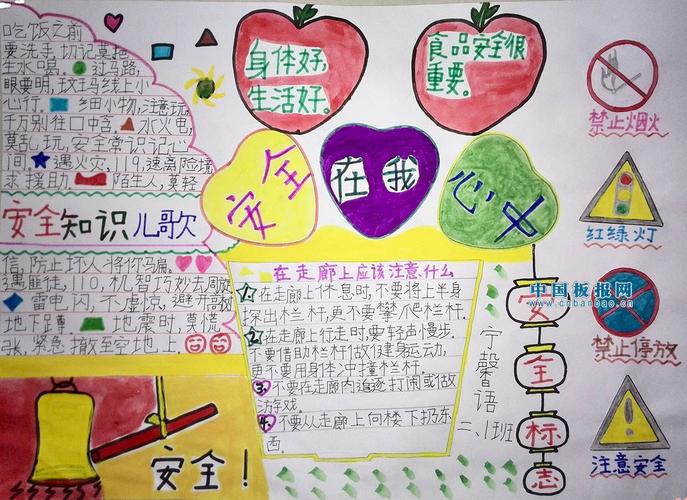 吃饭之前
要洗手,切记莫把
生水喝。过马路,
眼要明,斑马线上小
心行。细小物,注意玩,
千万别往口中含,水火电,
莫乱玩,安全常识记心
间 遇火灾,119,速离险境
求援助。陌生人,莫轻
安全知识儿歌
信,防止坏人将你骗。
遇匪徒,110,机智巧妙去周旋
雷电天,不虚惊,避开高树
地下蹲,地震时,莫慌
张,紧急撤至空地上。
安全!
身体好,
生活好。
食品安全很
重要。
安全
在我
心中
在走廊上应该注意什么
1.在走廊上休息时,不要将上半身
探出栏杆,更不要攀爬栏杆。
2.在走廊上行走时,要轻声慢步。
不要借助栏杆做健身运动,
更不要用身体冲撞栏杆。
3.不要在走廊内追逐打闹或做
游戏。
4.不要从走廊上向楼下扔东
西。
宁馨语
二、1班
安全标志
中国板报网
cnbanbao.cn
禁止烟火
红绿灯
禁止停放
注意安全